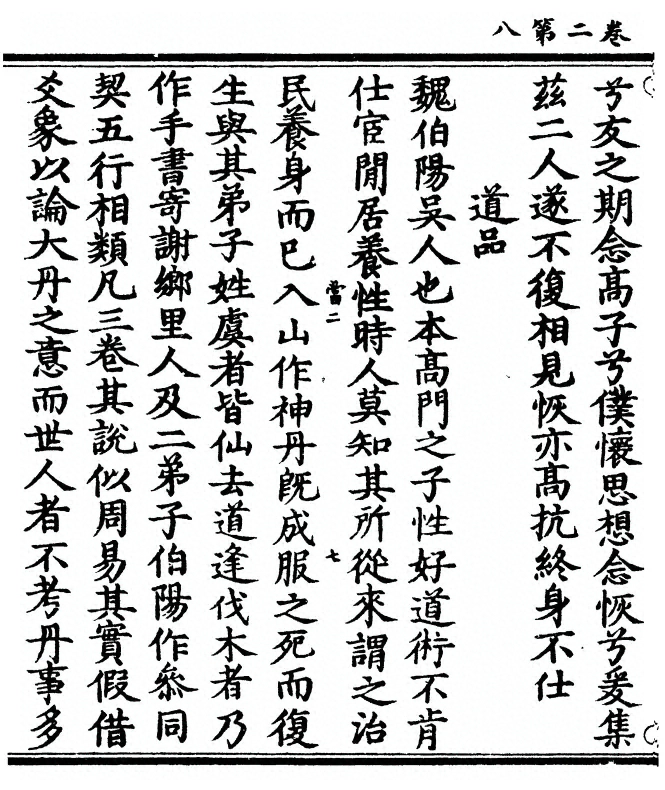 卷二第八
兮友之期念高子兮僕懷思想念恢兮爰集
茲二人遂不復相見恢亦高抗終身不仕
道品
魏伯陽吳人也本高門之子性好道術不肯
仕宦閒居養性時人莫知其所從來謂之治
當二
七
民養身而已入山作神丹旣成服之死而復
生與其弟子姓虞者皆仙去道逢伐木者乃
作手書寄謝鄉里人及二弟子伯陽作叅同
契五行相類凡三卷其說似周易其實假借
爻象以論大丹之意而世人者不考丹事多